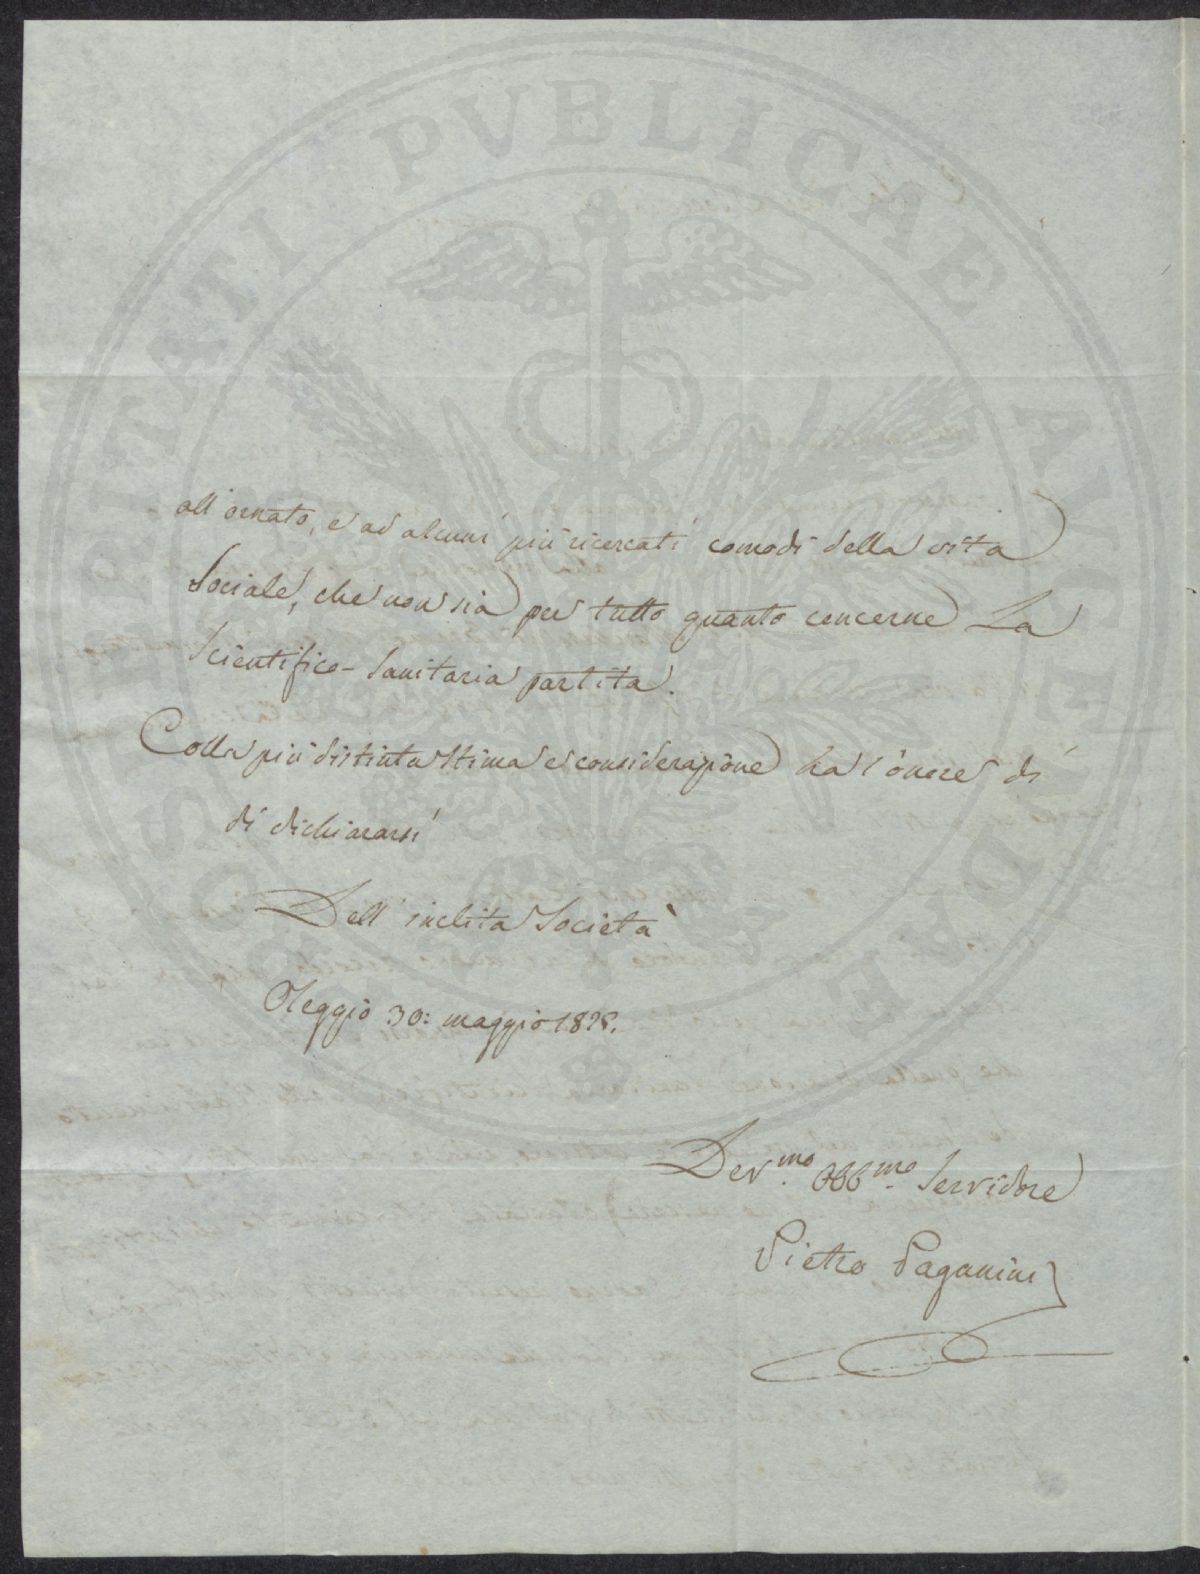 SOSPITATI PVBLICAE AVGENDAE
all'ornato, e ad alcuni più ricercati comodi della vita
Sociale, che non sia per tutto quanto concerne La
Scientifico-Sanitaria partita.
Colla più distinta Stima e considerazione ha l'onore di
di dichiararsi
Dell'inclita Società
Oleggio 30: maggio 1828.
Dev.mo Obb.mo Servidore
Pietro Paganini